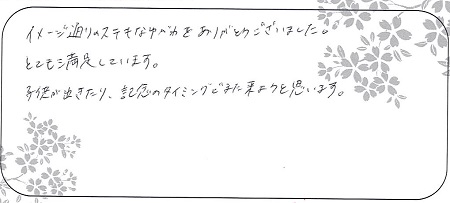 イメージ通りのステキなゆびわをありがとうございました。
とても満足しています。
子供が出きたり、記念のタイミングでまた来ようと思います。